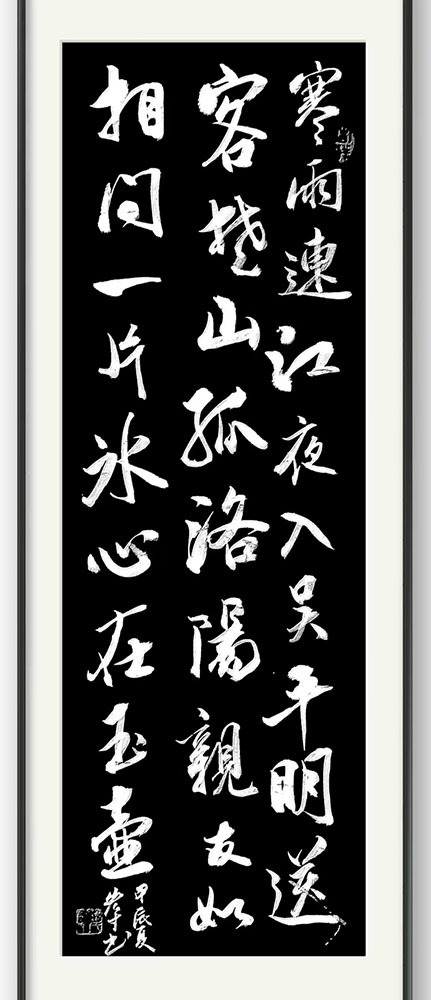 寒雨連江夜入吴平明送
客楚山孤洛陽親友如
相问一片冰心在玉壺
甲辰夏
书